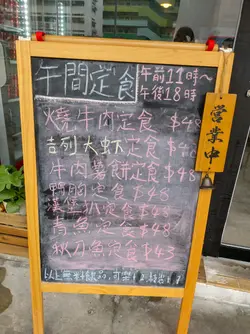 午間定食
午前11時～
午後18時
燒牛肉定食 $48
吉列大蝦定食 $48
牛肉薯餅定食 $48
鴨胸定食 $48
漢堡扒定食 $48
青魚定食 $48
秋刀魚定食 $43
以上無料飲品,可
營業中